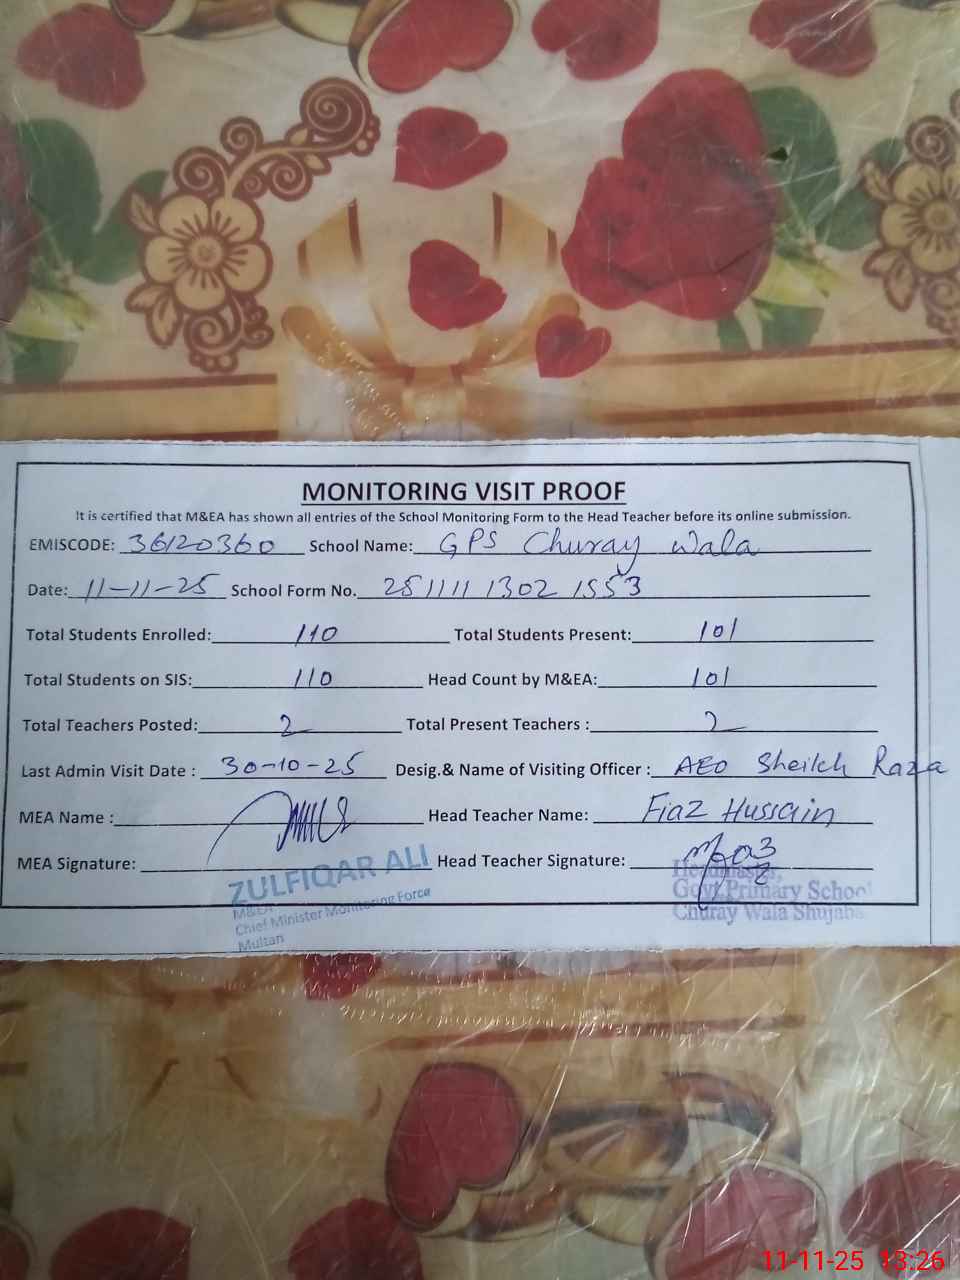 MONITORING VISIT PROOF
It is certified that M&EA has shown all entries of the School Monitoring Form to the Head Teacher before its online submission.
EMISCODE: 36120360 School Name: GPS Churay Wala
Date: 11-11-25 School Form No. 251111 1302 1553
Total Students Enrolled: 110 Total Students Present: 101
Total Students on SIS: 110 Head Count by M&EA: 101
Total Teachers Posted: 2 Total Present Teachers : 2
Last Admin Visit Date : 30-10-25 Desig.& Name of Visiting Officer : AEO Sheikh Raza
MEA Name : Head Teacher Name: Fiaz Hussain
MEA Signature: Head Teacher Signature:
ZULFIQAR ALI
M&EA
Chief Minister Monitoring Force
Multan
Headmaster,
Govt. Primary School
Churay Wala Shujaba
11-11-25 13:26